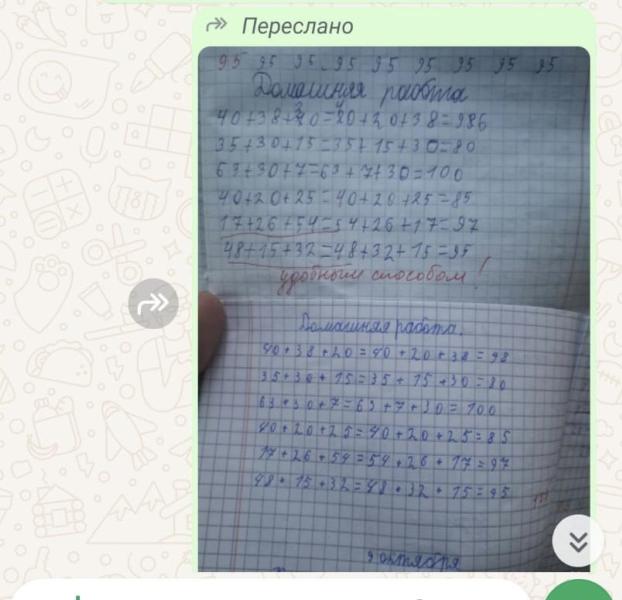 Переслано
95 95 95 95 95 95 95 95 95
Домашняя работа
35+30+15=35+15+30=80
63+30+7=63+7+30=100
40+20+25=40+20+25=85
17+26+54=54+26+17=97
48+15+32=48+32+15=95
удобным способом!
Домашняя работа.
40+38+20=40+20+38=98
35+30+15=35+15+30=80
63+30+7=63+7+30=100
40+20+25=40+20+25=85
17+26+54=54+26+17=97
48+15+32=48+32+15=95
9 октября